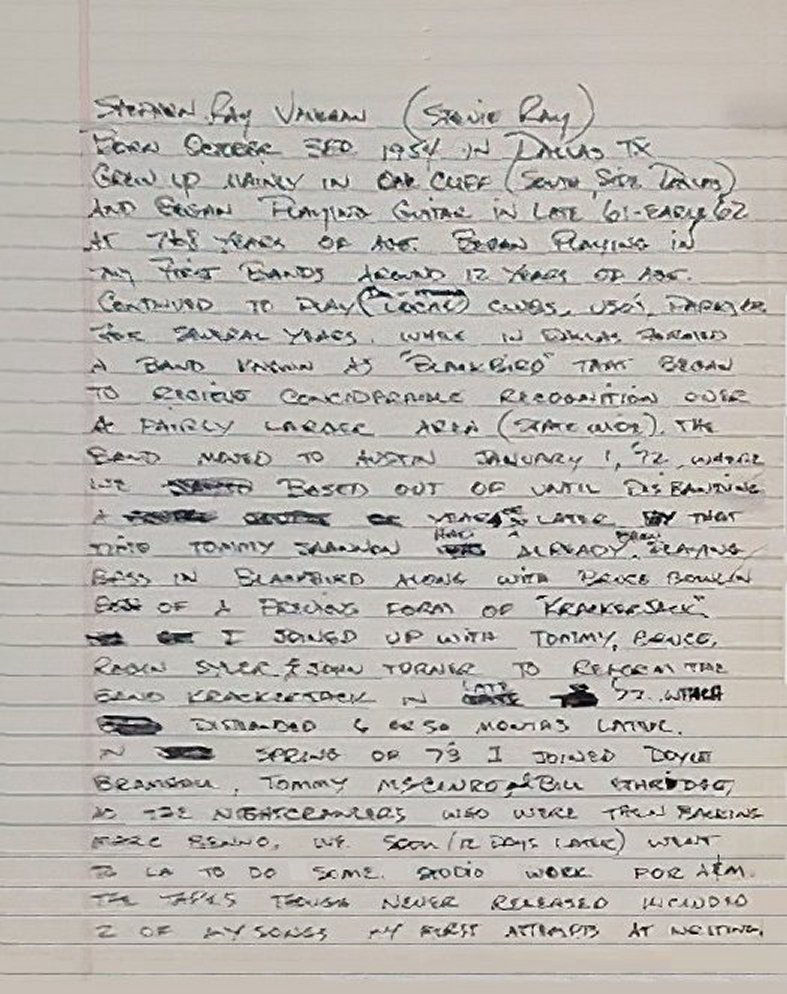 STEPHEN RAY VAUGHAN (STEVIE RAY)
BORN OCTOBER 3RD 1954 IN DALLAS TX
GREW UP MAINLY IN OAK CLIFF (SOUTH SIDE DALLAS)
AND BEGAN PLAYING GUITAR IN LATE '61-EARLY '62
AT 7&8 YEARS OF AGE. BEGAN PLAYING IN
MY FIRST BANDS AROUND 12 YEARS OF AGE.
CONTINUED TO PLAY (LOCAL) CLUBS, USO'S,
FOR SEVERAL YEARS. WHILE IN DALLAS FORMED
A BAND KNOWN AS "BLACKBIRD" THAT BEGAN
TO RECIEVE CONCIDERABLE RECOGNITION OVER
A FAIRLY LARGE AREA (STATE WIDE). THE
BAND MOVED TO AUSTIN JANUARY 1, '72, WHERE
WE BASED OUT OF UNTIL DISBANDING
A YEAR LATER BY THAT
TIME TOMMY SHANNON HAD ALREADY BEEN PLAYING
BASS IN BLACKBIRD ALONG WITH BRUCE BOWLIN
OF A PREVIOUS FORM OF "KRACKERJACK".
I JOINED UP WITH TOMMY, BRUCE,
ROBIN SYLER & JOHN TURNER TO REFORM THE
BAND KRACKERJACK IN LATE '72. WHICH
DISBANDED 6 OR SO MONTHS LATER.
IN SPRING OF 73 I JOINED DOYLE
BRAMHALL, TOMMY MCCLURE, & BILL ETHRIDGE,
AS THE NIGHTCRAWLERS WHO WERE THEN BACKING
MARC BENNO. WE SOON (12 DAYS LATER) WENT
TO LA TO DO SOME STUDIO WORK FOR A&M.
THE TAPES THOUGH NEVER RELEASED INCLUDED
2 OF MY SONGS MY FIRST ATTEMPTS AT WRITING.